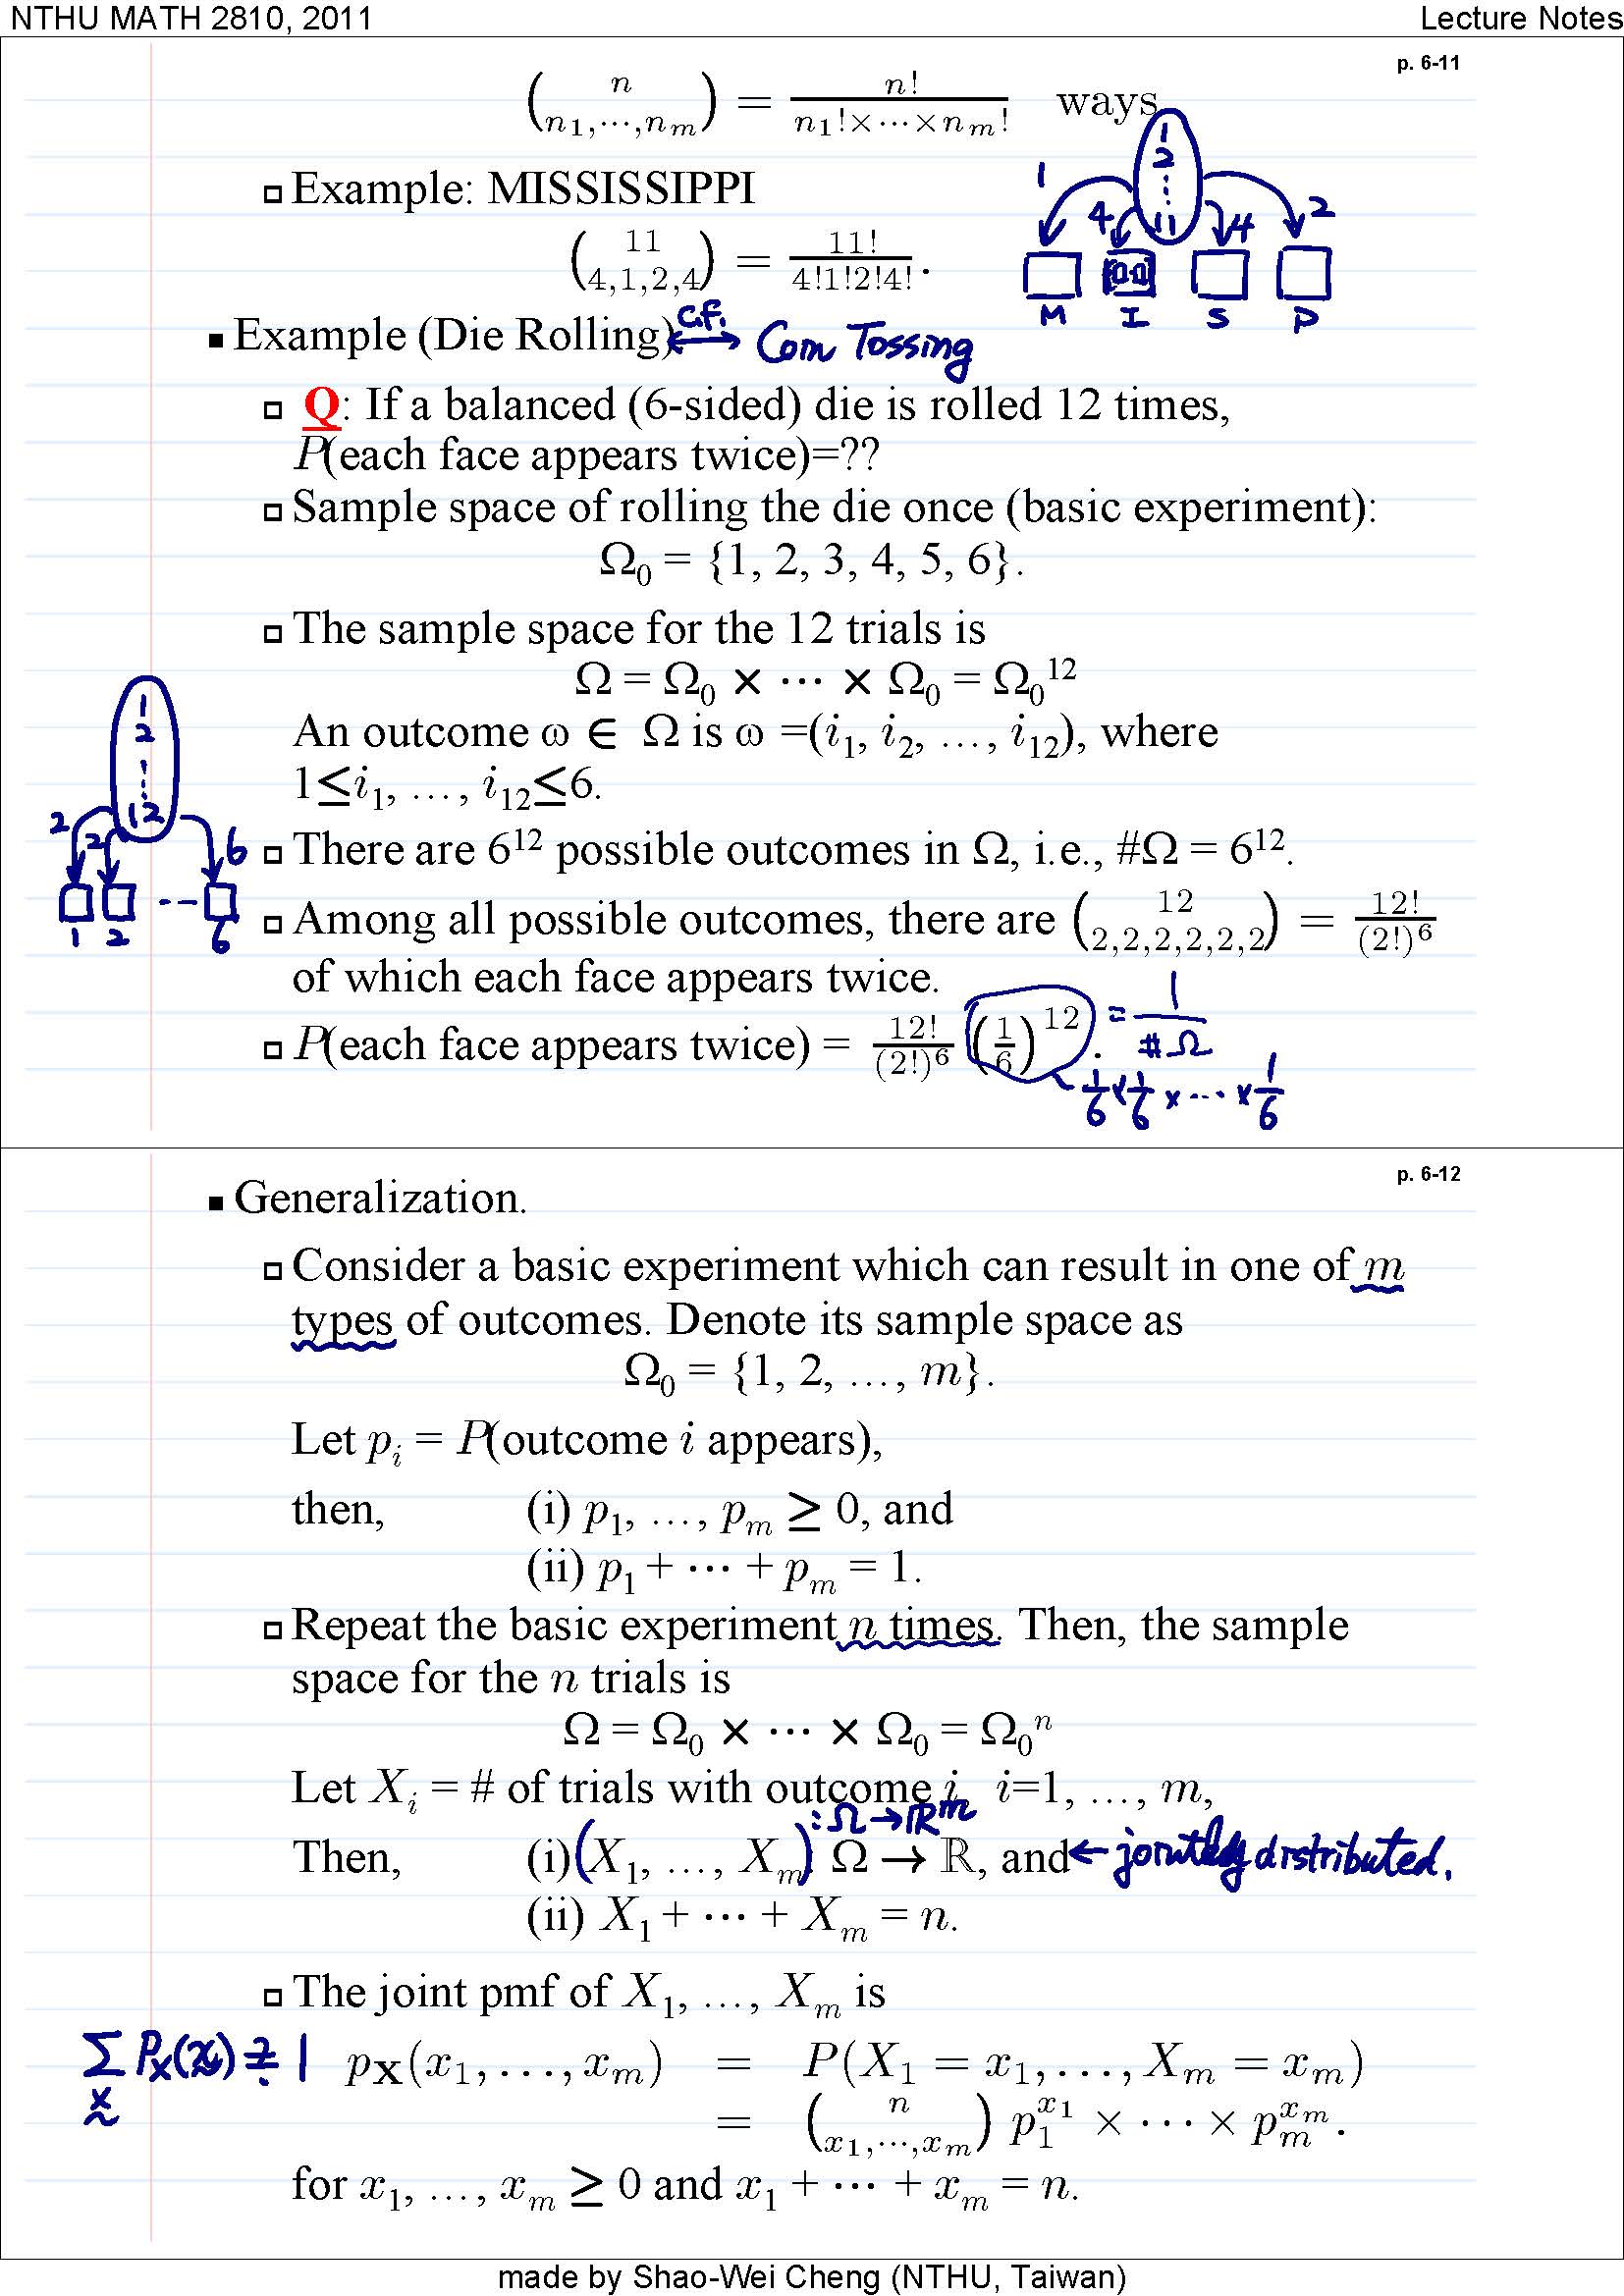 NTHU MATH 2810, 2011 Lecture Notes
p. 6-11
(n n₁,⋯,nₘ) = n!/(n₁!×⋯×nₘ!) ways
Example: MISSISSIPPI
(11 4,1,2,4) = 11!/(4!1!2!4!).
1 2 ⋮ 11
1 4 4 2
M I S P
Example (Die Rolling) c.f. ↔ Coin Tossing
Q: If a balanced (6-sided) die is rolled 12 times,
P(each face appears twice)=??
Sample space of rolling the die once (basic experiment):
Ω₀ = {1, 2, 3, 4, 5, 6}.
The sample space for the 12 trials is
Ω = Ω₀ × ⋯ × Ω₀ = Ω₀¹²
An outcome ω ∈ Ω is ω =(i₁, i₂, …, i₁₂), where
1≤i₁, …, i₁₂≤6.
1 2 ⋮ 12
2 2 6
1 2 -- 6
There are 6¹² possible outcomes in Ω, i.e., #Ω = 6¹².
Among all possible outcomes, there are (12 2,2,2,2,2,2) = 12!/(2!)⁶
of which each face appears twice.
P(each face appears twice) = 12!/(2!)⁶ (1/6)¹². = 1/#Ω
1/6 × 1/6 × ⋯ × 1/6
p. 6-12
Generalization.
Consider a basic experiment which can result in one of m
types of outcomes. Denote its sample space as
Ω₀ = {1, 2, …, m}.
Let pᵢ = P(outcome i appears),
then, (i) p₁, …, pₘ ≥ 0, and
(ii) p₁ + ⋯ + pₘ = 1.
Repeat the basic experiment n times. Then, the sample
space for the n trials is
Ω = Ω₀ × ⋯ × Ω₀ = Ω₀ⁿ
Let Xᵢ = # of trials with outcome i, i=1, …, m,
: Ω → ℝᵐ
Then, (i) (X₁, …, Xₘ): Ω → ℝ, and ← jointly distributed.
(ii) X₁ + ⋯ + Xₘ = n.
The joint pmf of X₁, …, Xₘ is
Σ_x p_X(x) ≟ 1
p_X(x₁, …, xₘ) = P(X₁ = x₁, …, Xₘ = xₘ)
= (n x₁,⋯,xₘ) p₁^x₁ × ⋯ × pₘ^xₘ.
for x₁, …, xₘ ≥ 0 and x₁ + ⋯ + xₘ = n.
made by Shao-Wei Cheng (NTHU, Taiwan)